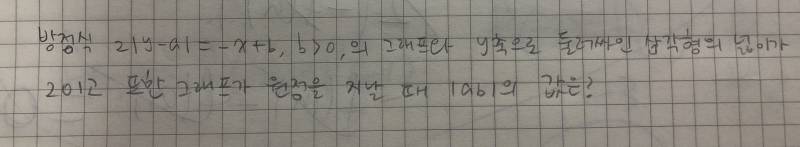 방정식 2|y-a|=-x+b, b>0, 의 그래프와 y축으로 둘러싸인 삼각형의 넓이가
20이고 또한 그래프가 원점을 지날 때 |ab|의 값은?